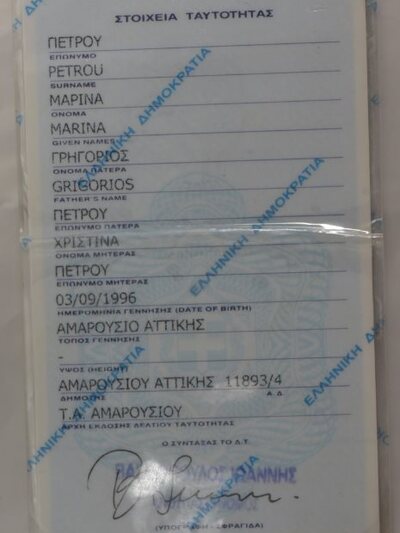 ΣΤΟΙΧΕΙΑ ΤΑΥΤΟΤΗΤΑΣ
ΠΕΤΡΟΥ
ΕΠΩΝΥΜΟ
PETROU
SURNAME
ΜΑΡΙΝΑ
ΟΝΟΜΑ
MARINA
GIVEN NAMES
ΓΡΗΓΟΡΙΟΣ
ΟΝΟΜΑ ΠΑΤΕΡΑ
GRIGORIOS
FATHER'S NAME
ΠΕΤΡΟΥ
ΕΠΩΝΥΜΟ ΠΑΤΕΡΑ
ΧΡΙΣΤΙΝΑ
ΟΝΟΜΑ ΜΗΤΕΡΑΣ
ΠΕΤΡΟΥ
ΕΠΩΝΥΜΟ ΜΗΤΕΡΑΣ
03/09/1996
ΗΜΕΡΟΜΗΝΙΑ ΓΕΝΝΗΣΗΣ (DATE OF BIRTH)
ΑΜΑΡΟΥΣΙΟ ΑΤΤΙΚΗΣ
ΤΟΠΟΣ ΓΕΝΝΗΣΗΣ
-
ΥΨΟΣ (HEIGHT)
ΑΜΑΡΟΥΣΙΟΥ ΑΤΤΙΚΗΣ 11893/4
ΔΗΜΟΤΗΣ Α.Δ.
Τ.Α. ΑΜΑΡΟΥΣΙΟΥ
ΑΡΧΗ ΕΚΔΟΣΗΣ ΔΕΛΤΙΟΥ ΤΑΥΤΟΤΗΤΑΣ
Ο ΣΥΝΤΑΞΑΣ ΤΟ Δ.Τ.
ΙΩΑΝΝΗΣ
(ΥΠΟΓΡΑΦΗ - ΣΦΡΑΓΙΔΑ)
ΕΛΛΗΝΙΚΗ ΔΗΜΟΚΡΑΤΙΑ
ΕΛΛΗΝΙΚΗ ΔΗΜΟΚΡΑΤΙΑ
ΕΛΛΗΝΙΚΗ
ΕΛΛΗΝΙΚΗ ΔΗΜΟΚΡΑΤΙΑ